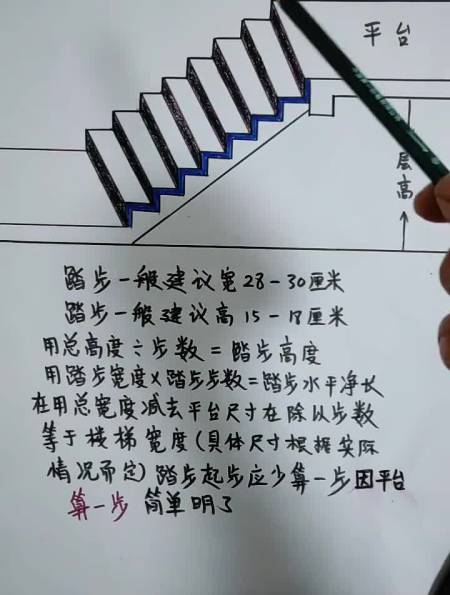 平台
层高
踏步一般建议宽28-30厘米
踏步一般建议高15-18厘米
用总高度÷步数=踏步高度
用踏步宽度×踏步步数=踏步水平净长
在用总宽度减去平台尺寸在除从步数
等于楼梯宽度(具体尺寸根据实际
情况而定)踏步起步应少算一步因平台
算一步 简单明了